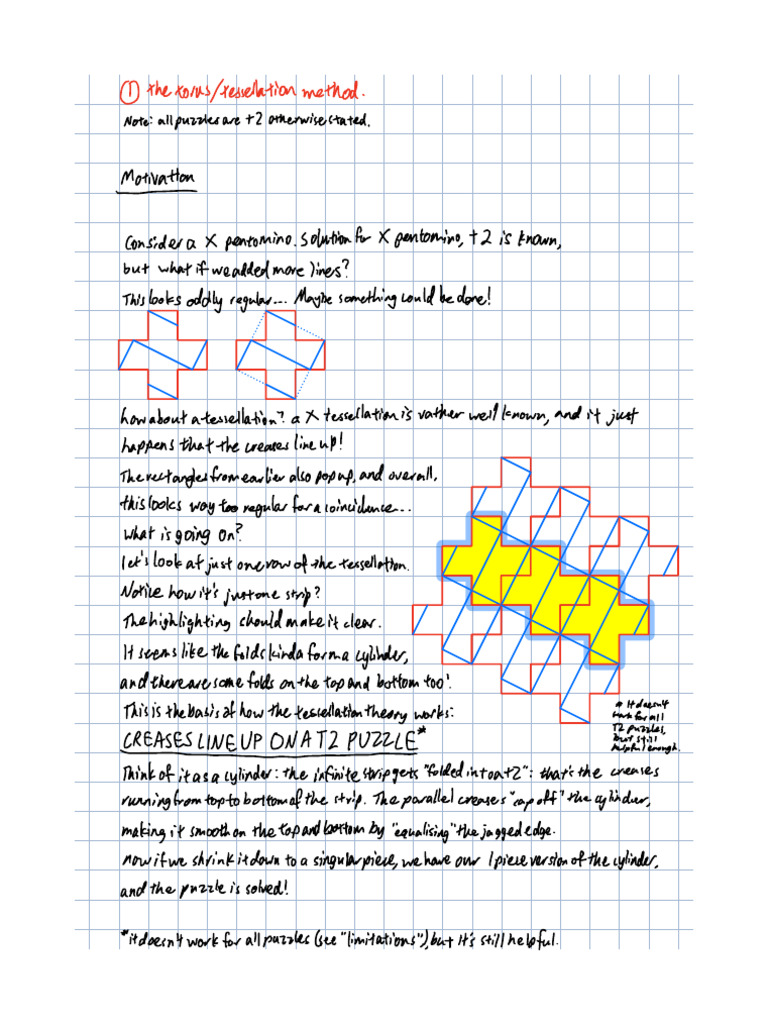 ① the torus/tessellation method.
Note: all puzzles are t2 otherwise stated.
Motivation
Consider a X pentomino. Solution for X pentomino, t2 is known,
but what if we added more lines?
This looks oddly regular... Maybe something could be done!
how about a tessellation? a X tessellation is rather well known, and it just
happens that the creases line up!
The rectangles from earlier also pop up, and overall,
this looks way too regular for a coincidence...
what is going on?
let's look at just one row of the tessellation.
Notice how it's just one strip?
The highlighting should make it clear.
It seems like the folds kinda form a cylinder,
and there are some folds on the top and bottom too!
This is the basis of how the tessellation theory works:
CREASES LINE UP ON A T2 PUZZLE*
* It doesn't
work for all
T2 puzzles,
but still
helpful enough.
Think of it as a cylinder: the infinite strip gets "folded into a t2": that's the creases
running from top to bottom of the strip. The parallel creases "cap off" the cylinder,
making it smooth on the top and bottom by "equalising" the jagged edge.
now if we shrink it down to a singular piece, we have our 1 piece version of the cylinder,
and the puzzle is solved!
*it doesn't work for all puzzles (see "limitations"), but it's still helpful.